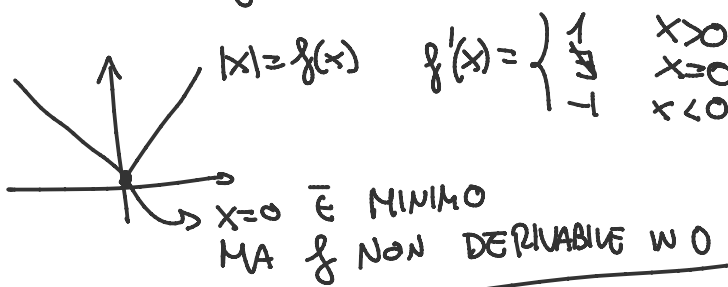 |x|=f(x) f'(x)= { 1 x>0
∄ x=0
-1 x<0
x=0 È MINIMO
MA f NON DERIVABILE IN 0